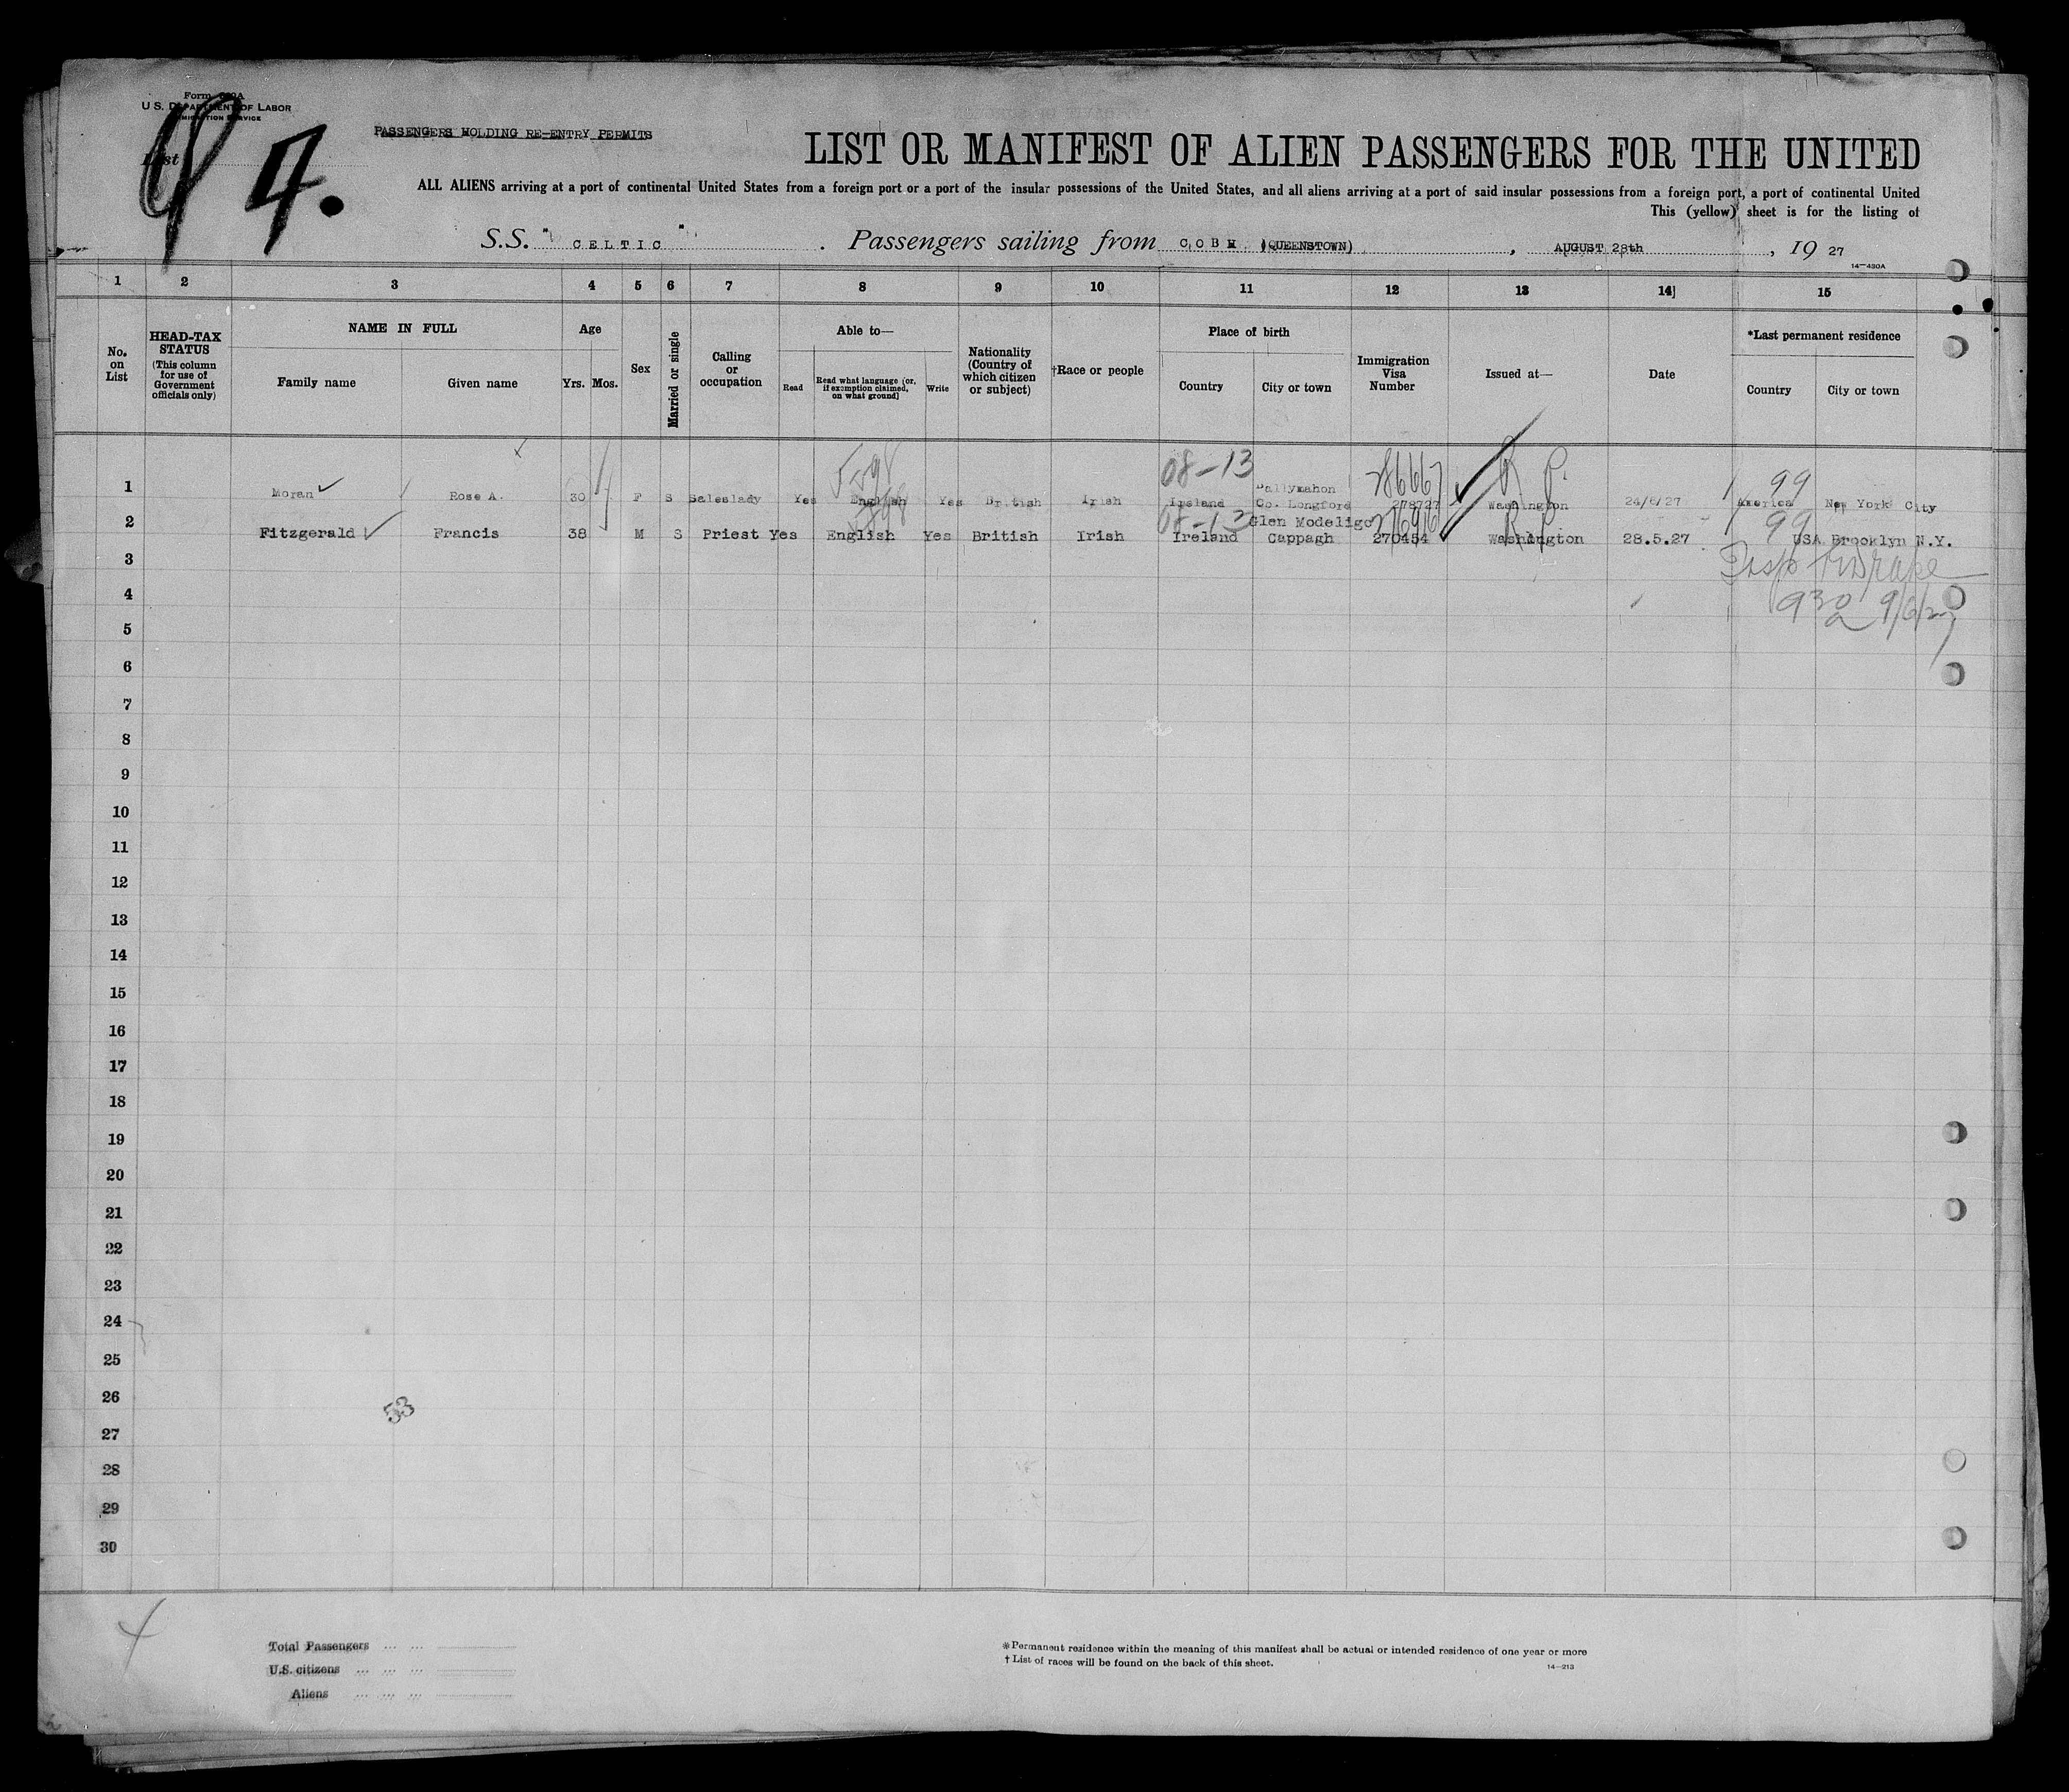 Form 630A
U S. DEPARTMENT OF LABOR
IMMIGRATION SERVICE
List
4.
PASSENGERS HOLDING RE-ENTRY PERMITS
LIST OR MANIFEST OF ALIEN PASSENGERS FOR THE UNITED
ALL ALIENS arriving at a port of continental United States from a foreign port or a port of the insular possessions of the United States, and all aliens arriving at a port of said insular possessions from a foreign port, a port of continental United
This (yellow) sheet is for the listing of
S.S. " CELTIC " . Passengers sailing from COBH (QUEENSTOWN) , AUGUST 28th , 19 27
14—430A
1 2 3 4 5 6 7 8 9 10 11 12 13 14 15
No. on List
HEAD-TAX STATUS (This column for use of Government officials only)
NAME IN FULL
Family name Given name
Age
Yrs. Mos.
Sex
Married or single
Calling or occupation
Able to—
Read Read what language (or, if exemption claimed, on what ground) Write
Nationality (Country of which citizen or subject)
†Race or people
Place of birth
Country City or town
Immigration Visa Number
Issued at—
Date
*Last permanent residence
Country City or town
08-13 R P. 99
Ballymahon
1 Moran Rose A. 30 F S Saleslady Yes English Yes British Irish Ireland Co. Longford 278727 Washington 24/6/27 America New York City
08-13 Glen Modeligo R P 99
2 Fitzgerald Francis 38 M S Priest Yes English Yes British Irish Ireland Cappagh 270454 Washington 28.5.27 USA Brooklyn N.Y.
3
4 930a 9/6/27
5
6
7
8
9
10
11
12
13
14
15
16
17
18
19
20
21
22
23
24
25
26
53
27
28
29
30
Total Passengers ... ...
U.S. citizens ... ... ...
Aliens ... ... ...
*Permanent residence within the meaning of this manifest shall be actual or intended residence of one year or more
† List of races will be found on the back of this sheet.
14—213